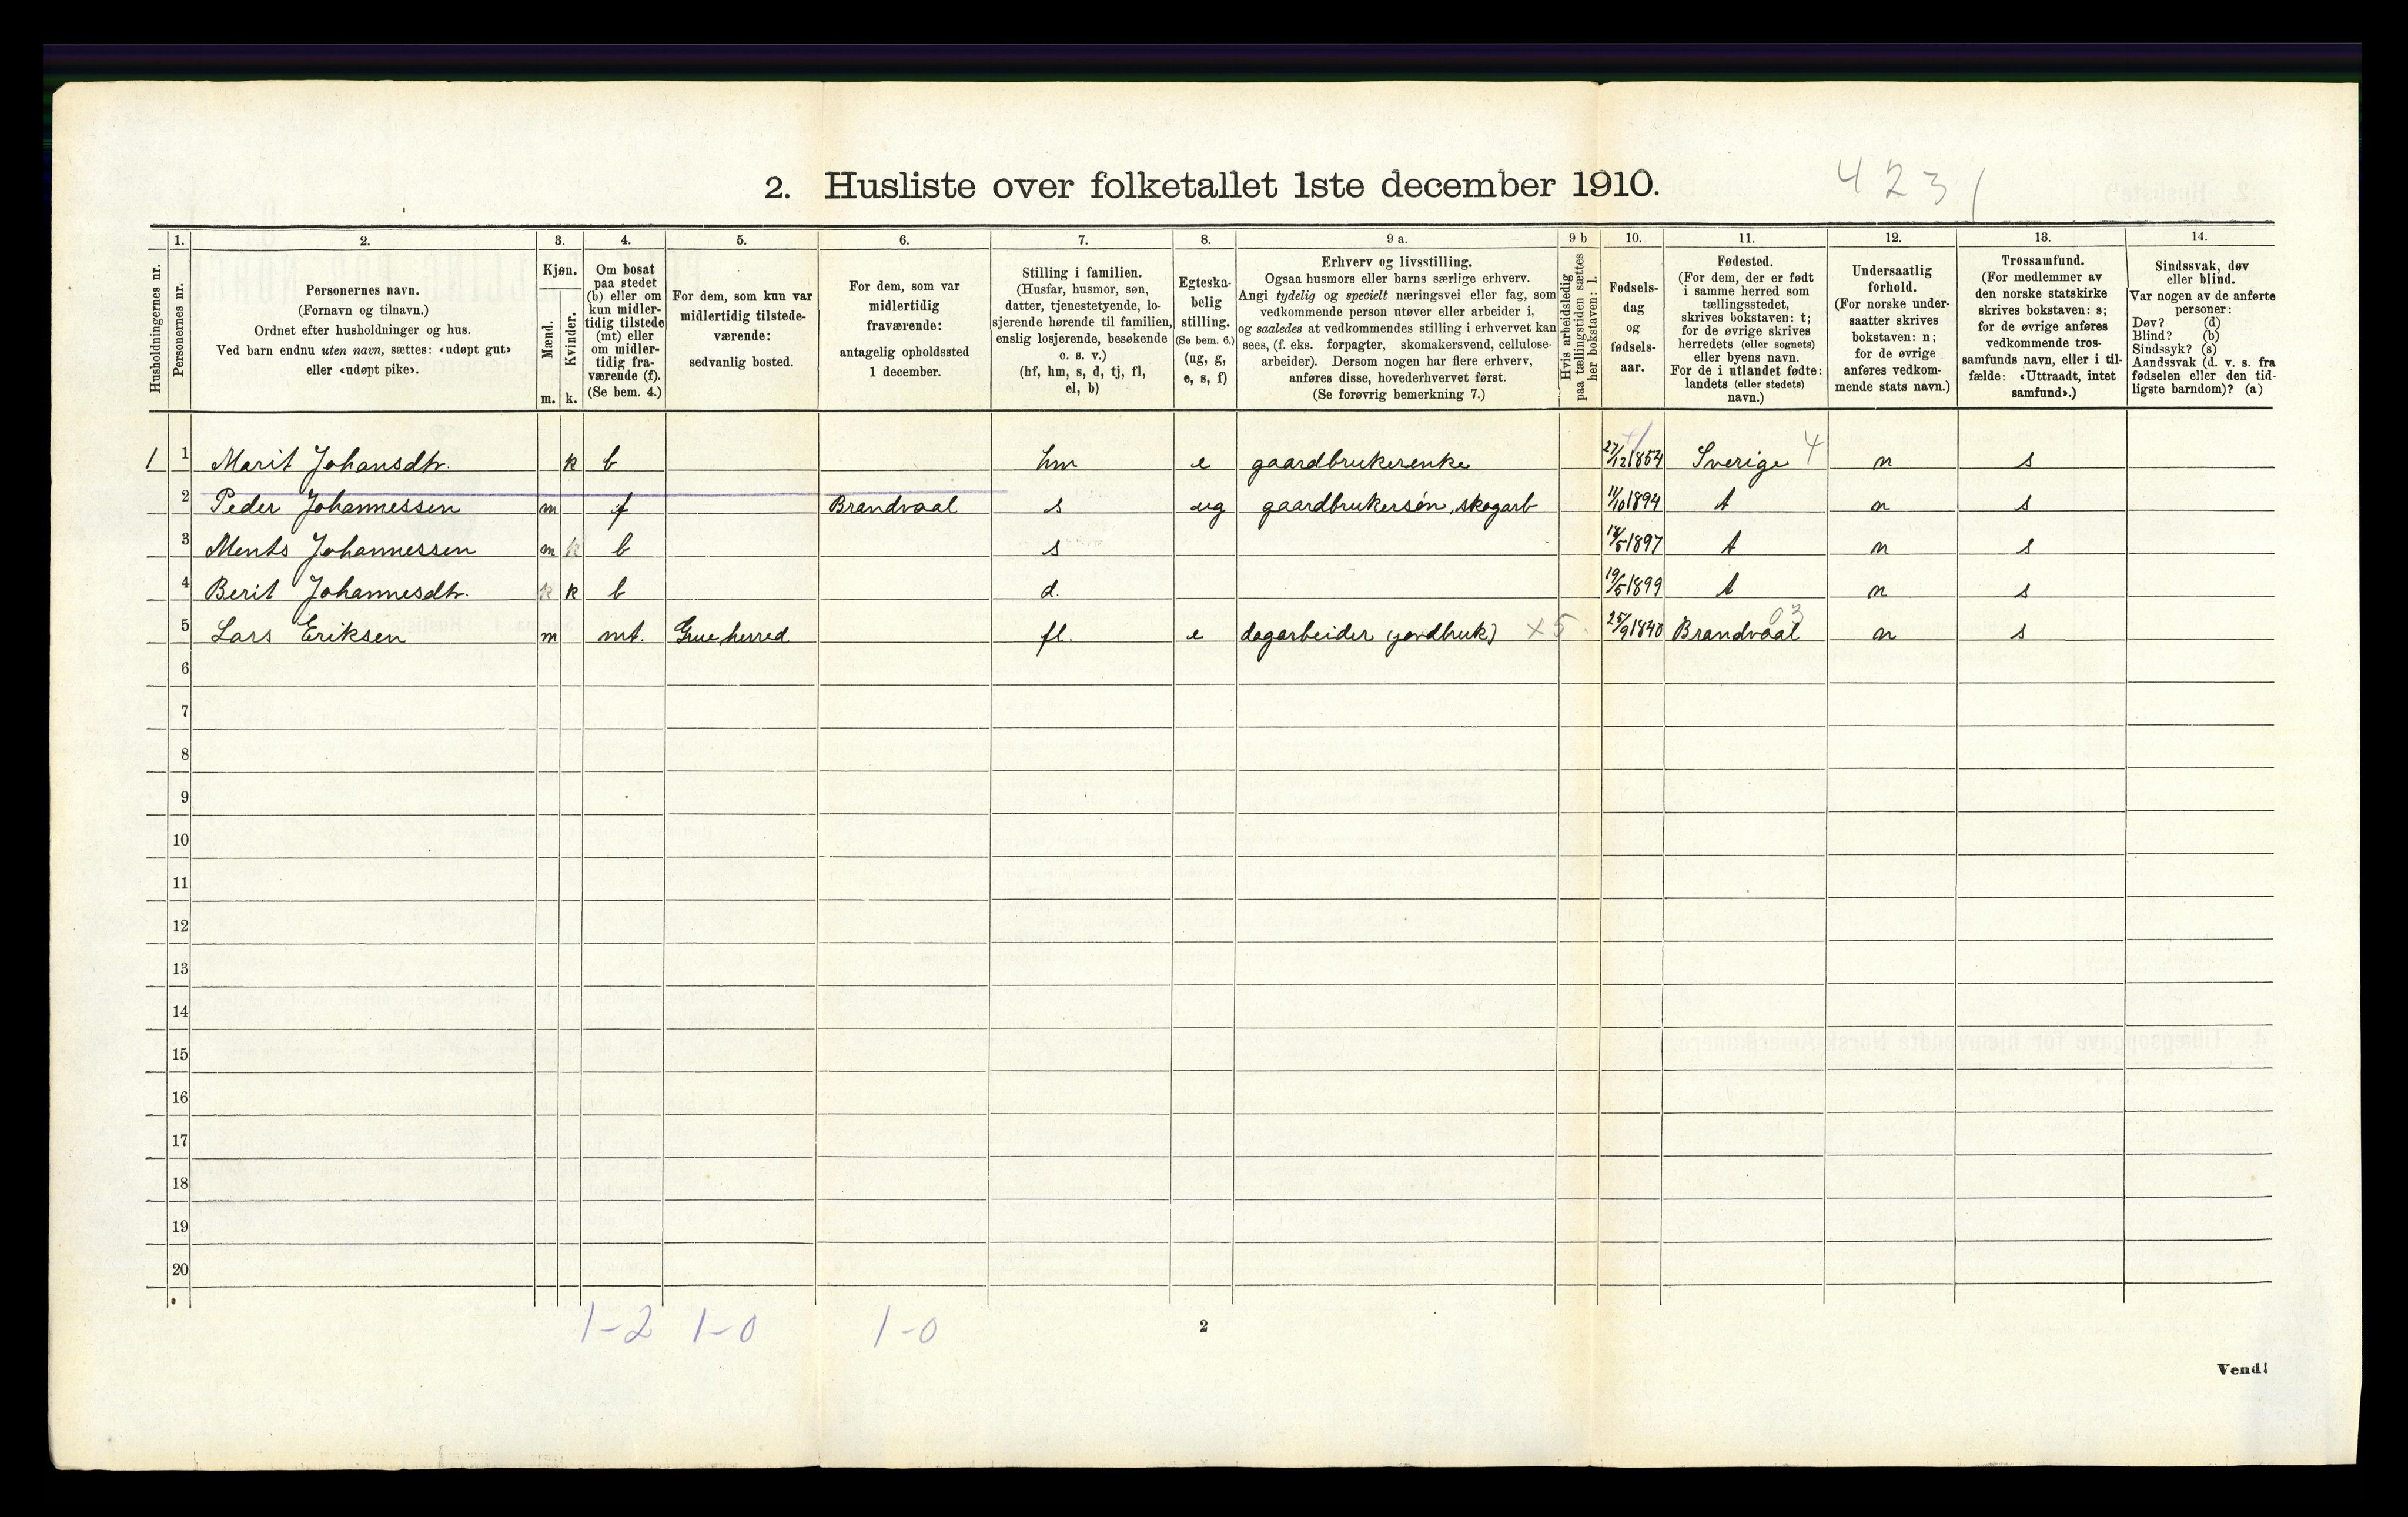 2. Husliste over folketallet 1ste december 1910.
4 2 3 1
Husholdningernes nr.
1.
Personernes nr.
2.
Personernes navn.
(Fornavn og tilnavn.)
Ordnet efter husholdninger og hus.
Ved barn endnu uten navn, sættes: «udøpt gut»
eller «udøpt pike».
3.
Kjøn.
Mænd.
Kvinder.
m. k.
4.
Om bosat
paa stedet
(b) eller om
kun midler-
tidig tilstede
(mt) eller
om midler-
tidig fra-
værende (f).
(Se bem. 4.)
5.
For dem, som kun var
midlertidig tilstede-
værende:
sedvanlig bosted.
6.
For dem, som var
midlertidig
fraværende:
antagelig opholdssted
1 december.
7.
Stilling i familien.
(Husfar, husmor, søn,
datter, tjenestetyende, lo-
sjerende hørende til familien,
enslig losjerende, besøkende
o. s. v.)
(hf, hm, s, d, tj, fl,
el, b)
8.
Egteska-
belig
stilling.
(Se bem. 6.)
(ug, g,
e, s, f)
9 a.
Erhverv og livsstilling.
Ogsaa husmors eller barns særlige erhverv.
Angi tydelig og specielt næringsvei eller fag, som
vedkommende person utøver eller arbeider i,
og saaledes at vedkommendes stilling i erhvervet kan
sees, (f. eks. forpagter, skomakersvend, cellulose-
arbeider). Dersom nogen har flere erhverv,
anføres disse, hovederhvervet først.
(Se forøvrig bemerkning 7.)
9 b
Hvis arbeidsledig
paa tællingstiden sættes
her bokstaven: l.
10.
Fødsels-
dag
og
fødsels-
aar.
11.
Fødested.
(For dem, der er født
i samme herred som
tællingsstedet,
skrives bokstaven: t;
for de øvrige skrives
herredets (eller sognets)
eller byens navn.
For de i utlandet fødte:
landets (eller stedets)
navn.)
12.
Undersaatlig
forhold.
(For norske under-
saatter skrives
bokstaven: n;
for de øvrige
anføres vedkom-
mende stats navn.)
13.
Trossamfund.
(For medlemmer av
den norske statskirke
skrives bokstaven: s;
for de øvrige anføres
vedkommende tros-
samfunds navn, eller i til-
fælde: «Uttraadt, intet
samfund».)
14.
Sindssvak, døv
eller blind.
Var nogen av de anførte
personer:
Døv? (d)
Blind? (b)
Sindssyk? (s)
Aandssvak (d. v. s. fra
fødselen eller den tid-
ligste barndom)? (a)
1 1 Marit Johansdtr. k b hm e gaardbrukerenke 27/12 1854 Sverige 4 n s
2 Peder Johannessen m f Brandvaal s ug gaardbrukersøn, skogarb 11/10 1894 t n s
3 Ments Johannessen m k b s 14/5 1897 t n s
4 Berit Johannesdtr. k k b d. 19/5 1899 t n s
5 Lars Eriksen m mt. Grue herred fl. e dagarbeider (jordbruk) x5 25/9 1840 Brandvaal 03 n s
6
7
8
9
10
11
12
13
14
15
16
17
18
19
20
1-2 1-0 1-0
2
Vend!